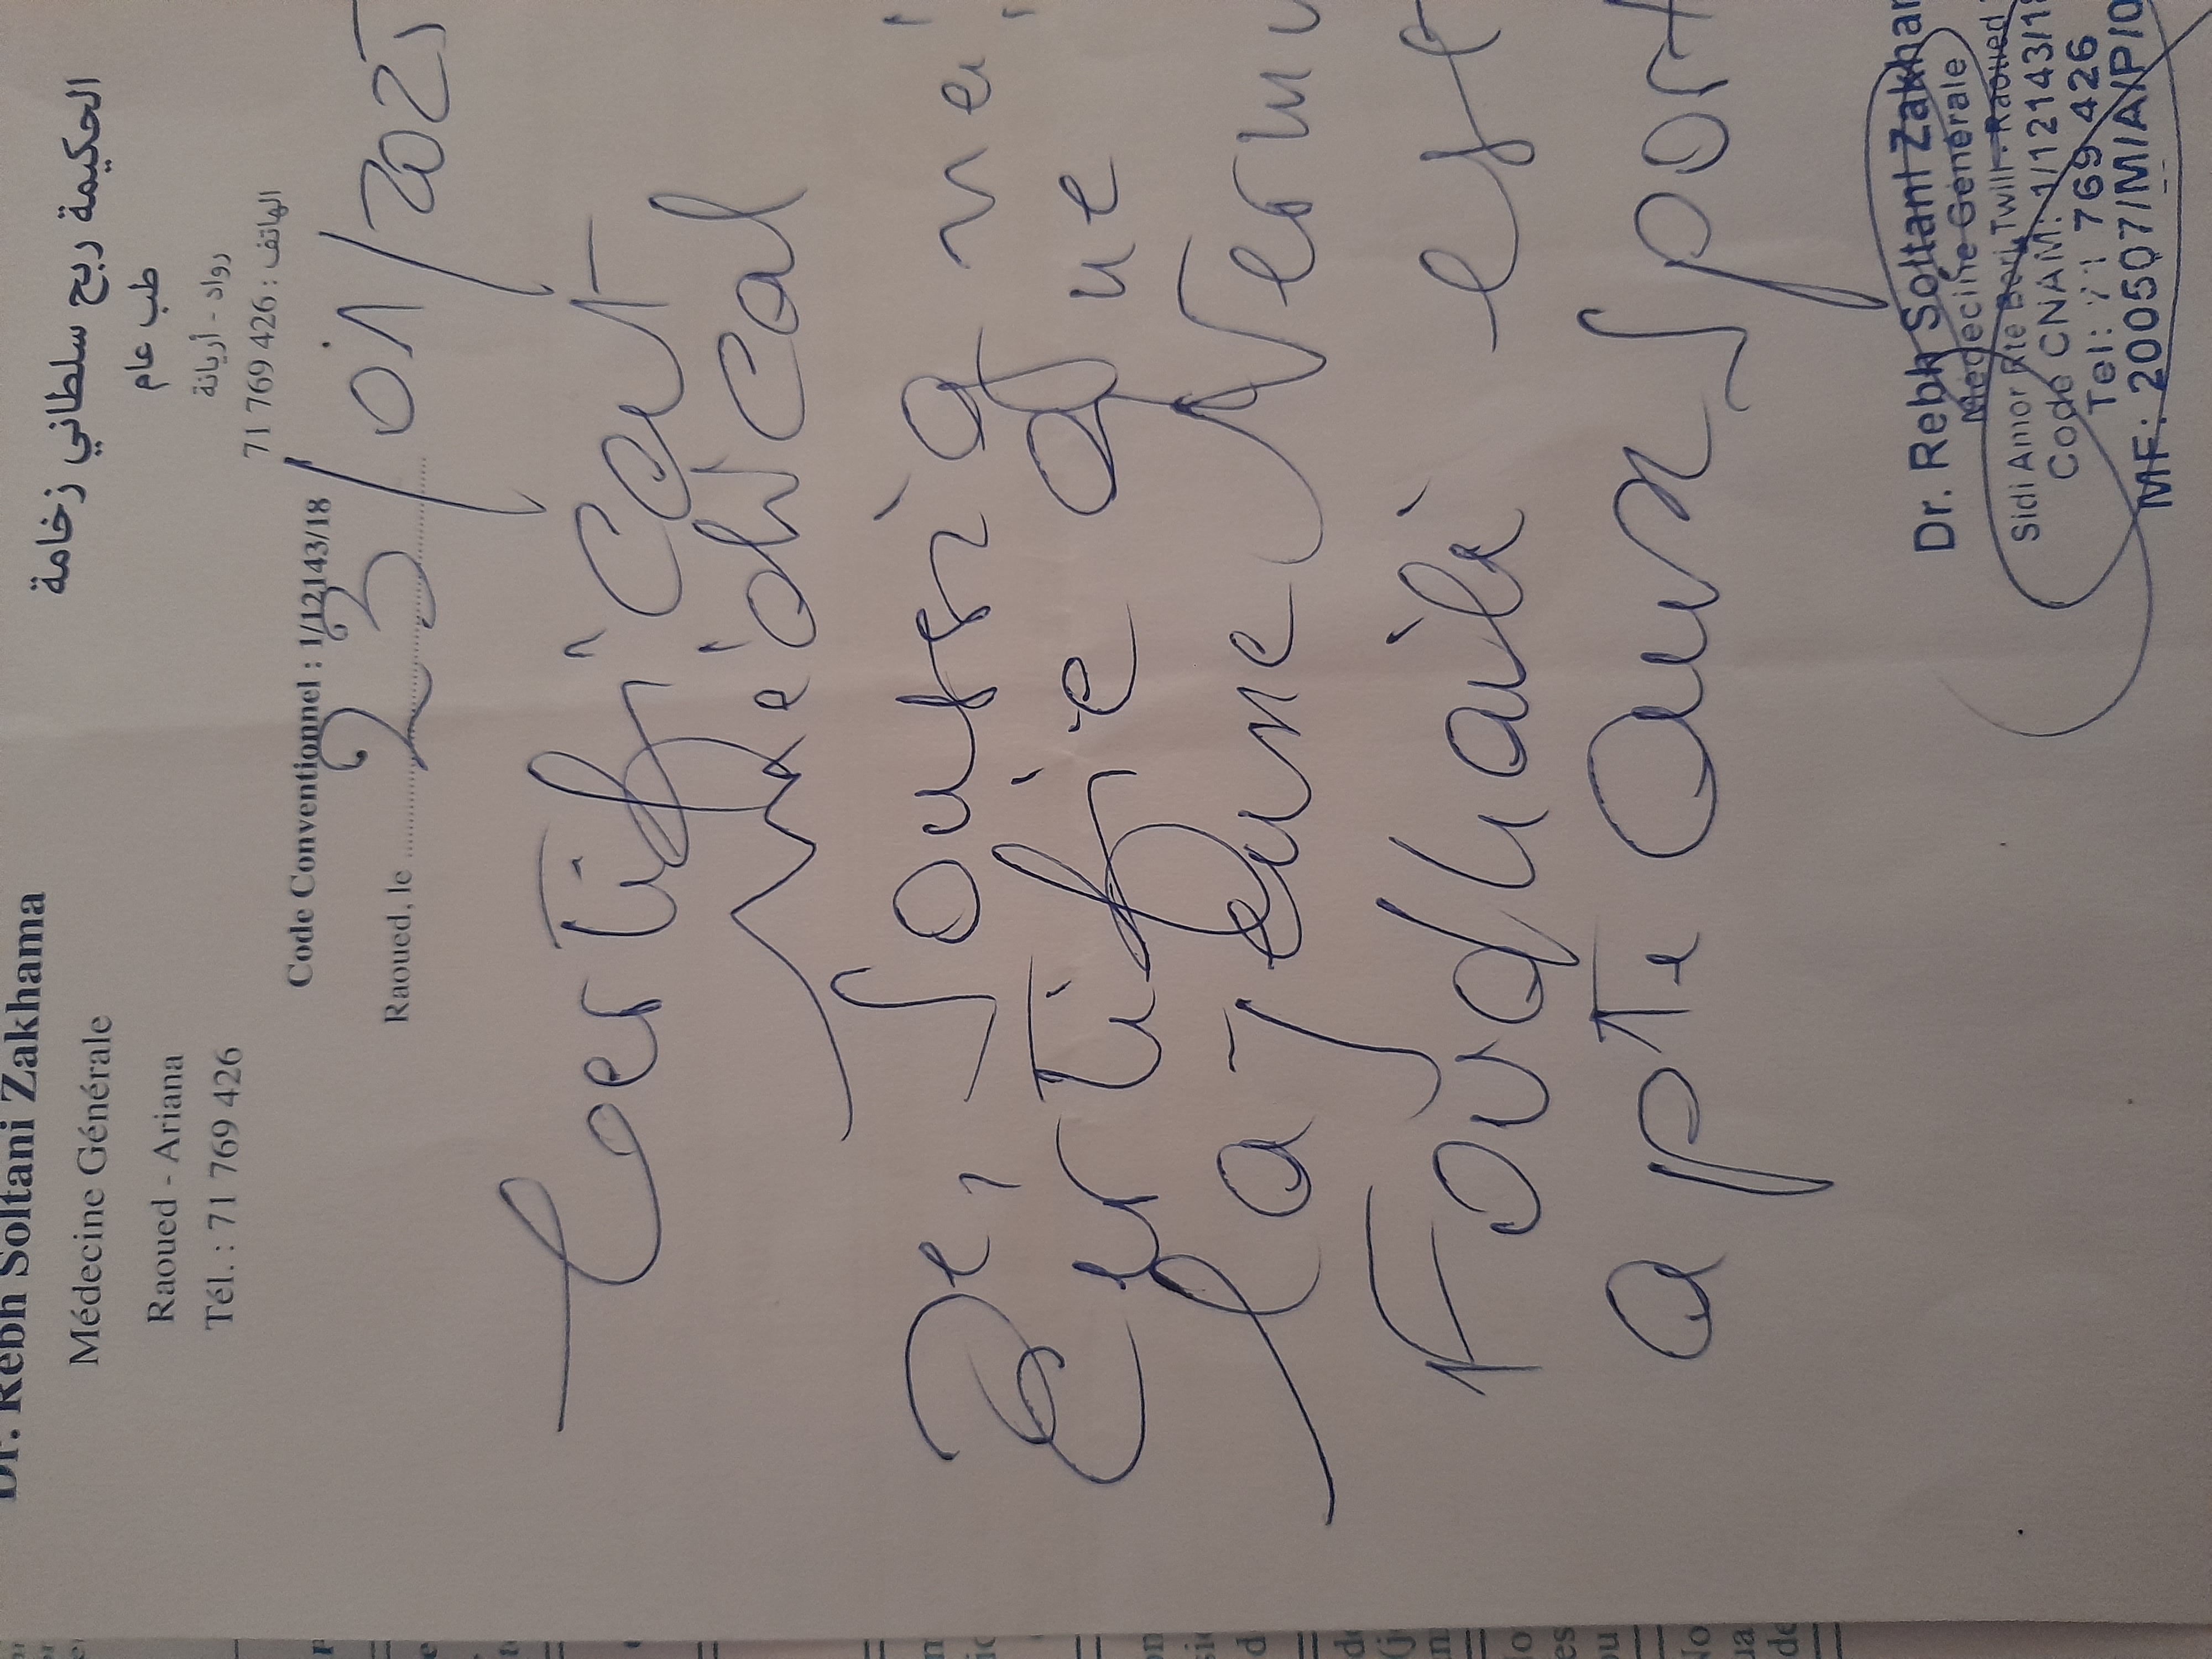 Dr. Rebh Soltani Zakhama
Médecine Générale
Raoued - Ariana
Tél. : 71 769 426
الحكيمة ربح سلطاني زخامة
طب عام
رواد - أريانة
الهاتف : 426 769 71
Code Conventionnel : 1/12143/18
Raoued, le 23/01/2025
Certificat
Médical
certifie que
la jeune
est
apte aux sport
Dr. Rebh Soltani Zakham
Médecine Générale
Sidi Amor Rte Borj Twill - Raoued
Code CNAM: 1/12143/18
Tel: 71 769 426
MF: 200507/M/A/P/0